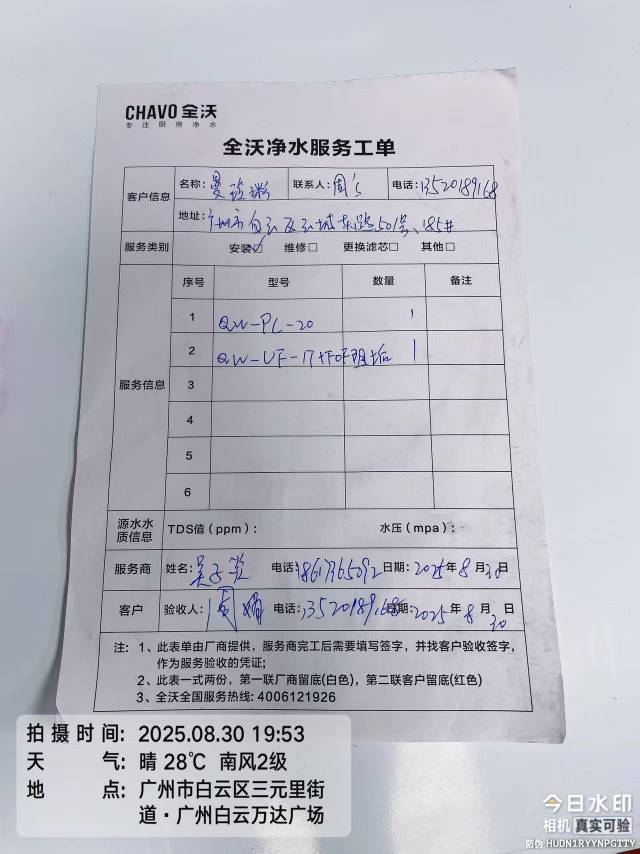 CHAVO 全沃
专注厨房净水
全沃净水服务工单
客户信息 名称: 曼玲粥 联系人: 周's 电话: 13520189168
地址: 广州市白云区云城东路501号、185#
服务类别 安装☑ 维修□ 更换滤芯□ 其他□
服务信息
序号 型号 数量 备注
1 QW-PL-20 1
2 QW-UF-1T+FOF阻垢 1
3
4
5
6
源水水质信息 TDS值（ppm）: 水压（mpa）:
服务商 姓名: 电话: 日期: 2025年8月30日
客户 验收人: 周 电话: 13520189168 日期: 2025年8月30日
注: 1、此表单由厂商提供，服务商完工后需要填写签字，并找客户验收签字，
作为服务验收的凭证;
2、此表一式两份，第一联厂商留底(白色)，第二联客户留底(红色)
3、全沃全国服务热线: 4006121926
拍摄时间: 2025.08.30 19:53
天气: 晴 28℃ 南风2级
地点: 广州市白云区三元里街
道·广州白云万达广场
今日水印
相机 真实可验
防伪 HUDN1RYYNPGTTY